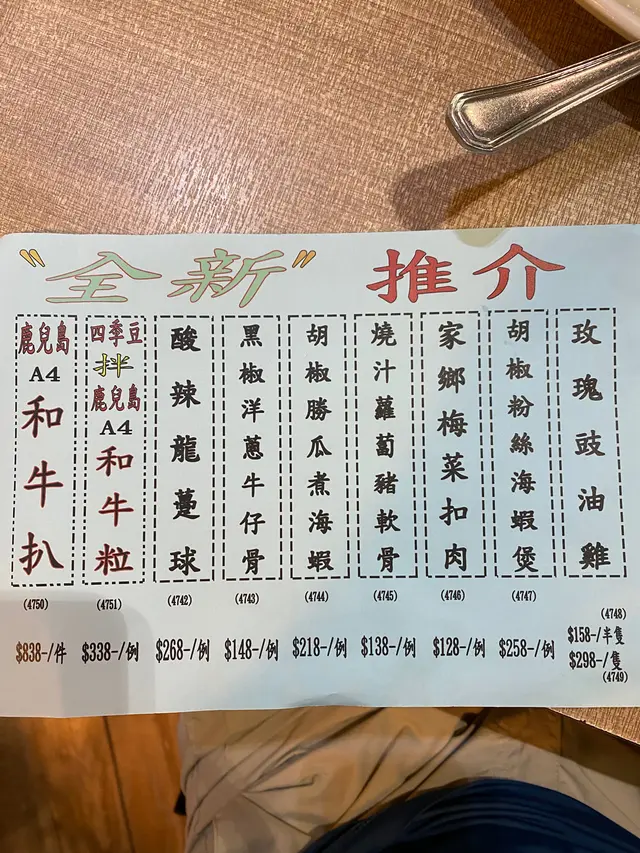 "全新" 推介
鹿兒島
A4
和牛扒
(4750)
$838-/件
四季豆
拌
鹿兒島
A4
和牛粒
(4751)
$338-/例
酸辣龍躉球
(4742)
$268-/例
黑椒洋蔥牛仔骨
(4743)
$148-/例
胡椒勝瓜煮海蝦
(4744)
$218-/例
燒汁蘿蔔豬軟骨
(4745)
$138-/例
家鄉梅菜扣肉
(4746)
$128-/例
胡椒粉絲海蝦煲
(4747)
$258-/例
玫瑰豉油雞
(4748)
$158-/半隻
$298-/隻
(4749)